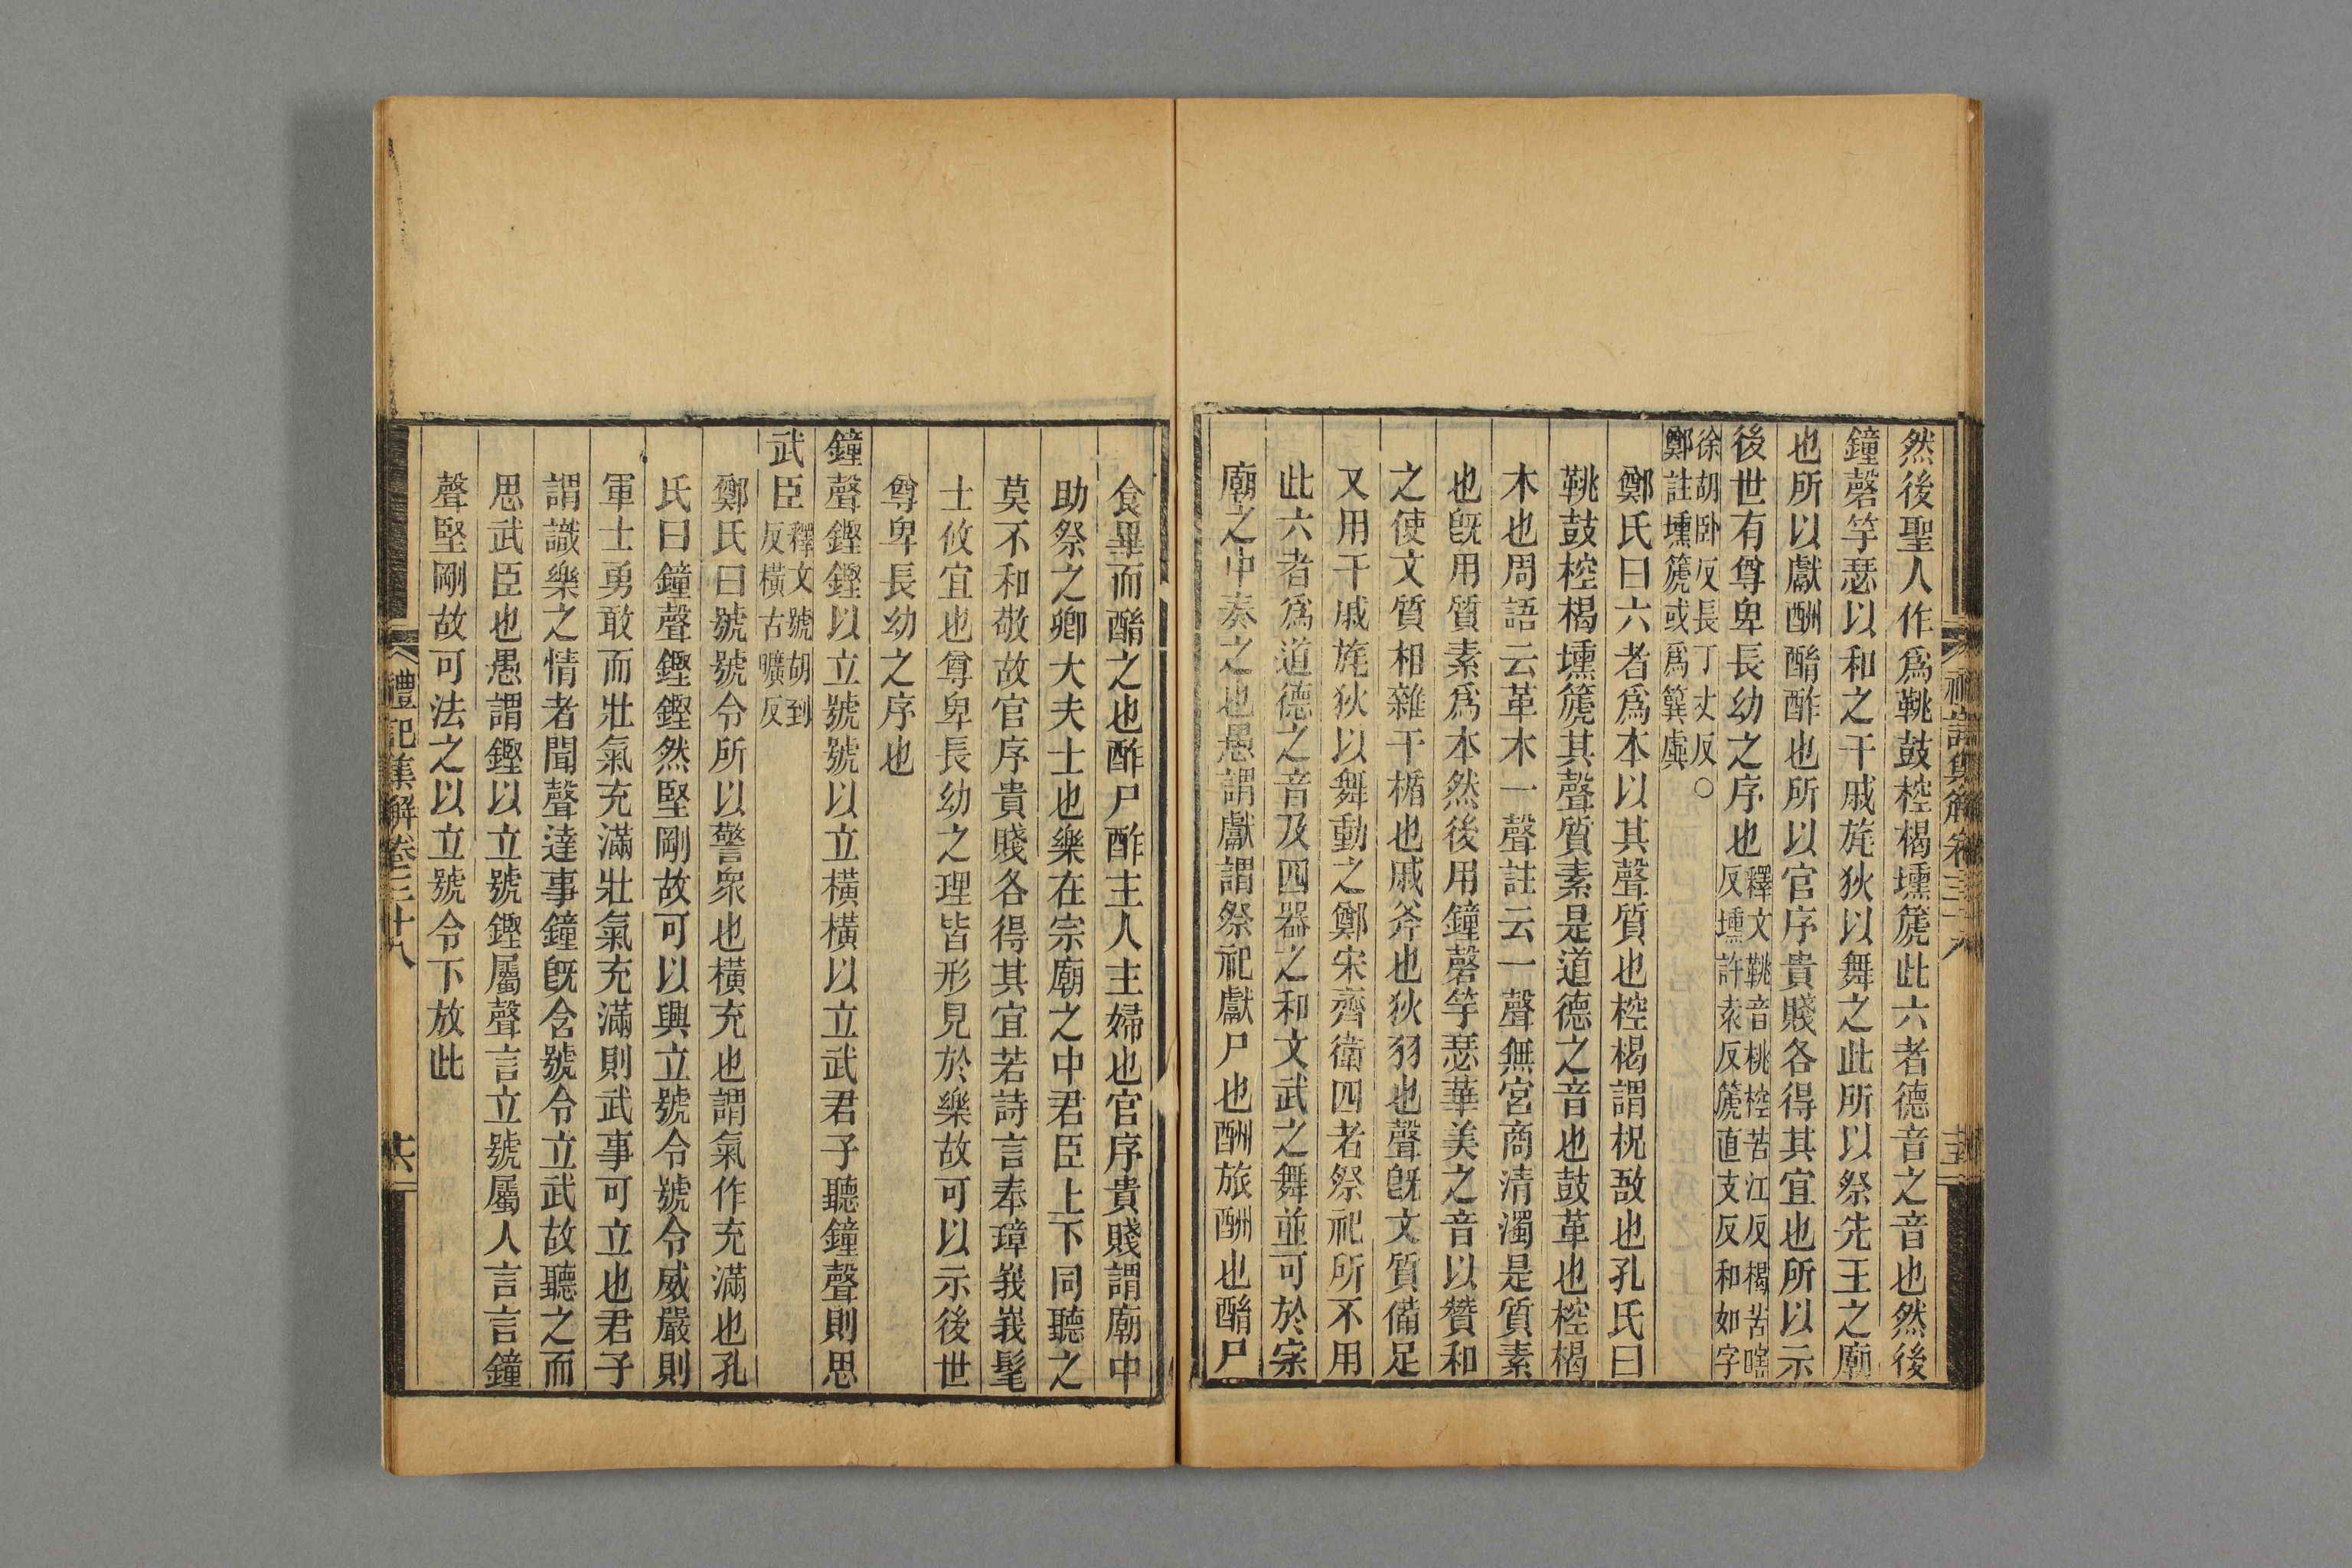 然後聖人作爲鞉鼓椌楬壎篪此六者德音之音也然後
鐘磬竽瑟以和之干戚旄狄以舞之此所以祭先王之廟
也所以獻酬酳酢也所以官序貴賤各得其宜也所以示
後世有尊卑長幼之序也釋文鞉音桃椌苦江反楬苦瞎
反壎許袁反篪直支反和如字
徐胡卧反長丁丈反○
鄭註壎篪或爲簨虡
鄭氏曰六者爲本以其聲質也椌楬謂柷敔也孔氏曰
鞉鼓椌楬壎篪其聲質素是道德之音也鼓革也椌楬
木也周語云革木一聲註云一聲無宮商清濁是質素
也旣用質素爲本然後用鐘磬竽瑟華美之音以贊和
之使文質相雜干楯也戚斧也狄羽也聲旣文質備足
又用干戚旄狄以舞動之鄭宋齊衛四者祭祀所不用
此六者爲道德之音及四器之和文武之舞並可於宗
廟之中奏之也愚謂獻謂祭祀獻尸也酬旅酬也酳尸
食畢而酳之也酢尸酢主人主婦也官序貴賤謂廟中
助祭之卿大夫士也樂在宗廟之中君臣上下同聽之
莫不和敬故官序貴賤各得其宜若詩言奉璋峩峩髦
士攸宜也尊卑長幼之理皆形見於樂故可以示後世
尊卑長幼之序也
鐘聲鏗鏗以立號號以立橫橫以立武君子聽鐘聲則思
武臣釋文號胡到
反橫古曠反
鄭氏曰號號令所以警衆也橫充也謂氣作充滿也孔
氏曰鐘聲鏗鏗然堅剛故可以興立號令號令威嚴則
軍士勇敢而壯氣充滿壯氣充滿則武事可立也君子
謂識樂之情者聞聲達事鐘旣含號令立武故聽之而
思武臣也愚謂鏗以立號鏗屬聲言立號屬人言言鐘
聲堅剛故可法之以立號令下放此
禮記集解卷三十八
十六